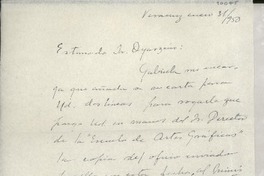 Veracruz enero 21/950
Estimado Sr. Oyarzún:
Gabriela me encar-
ga que añada a su carta para
Ud. dos líneas para rogarle que
ponga Ud en manos del Sr. Director
de la "Escuela de Artes Gráficas"
la copia del oficio enviado